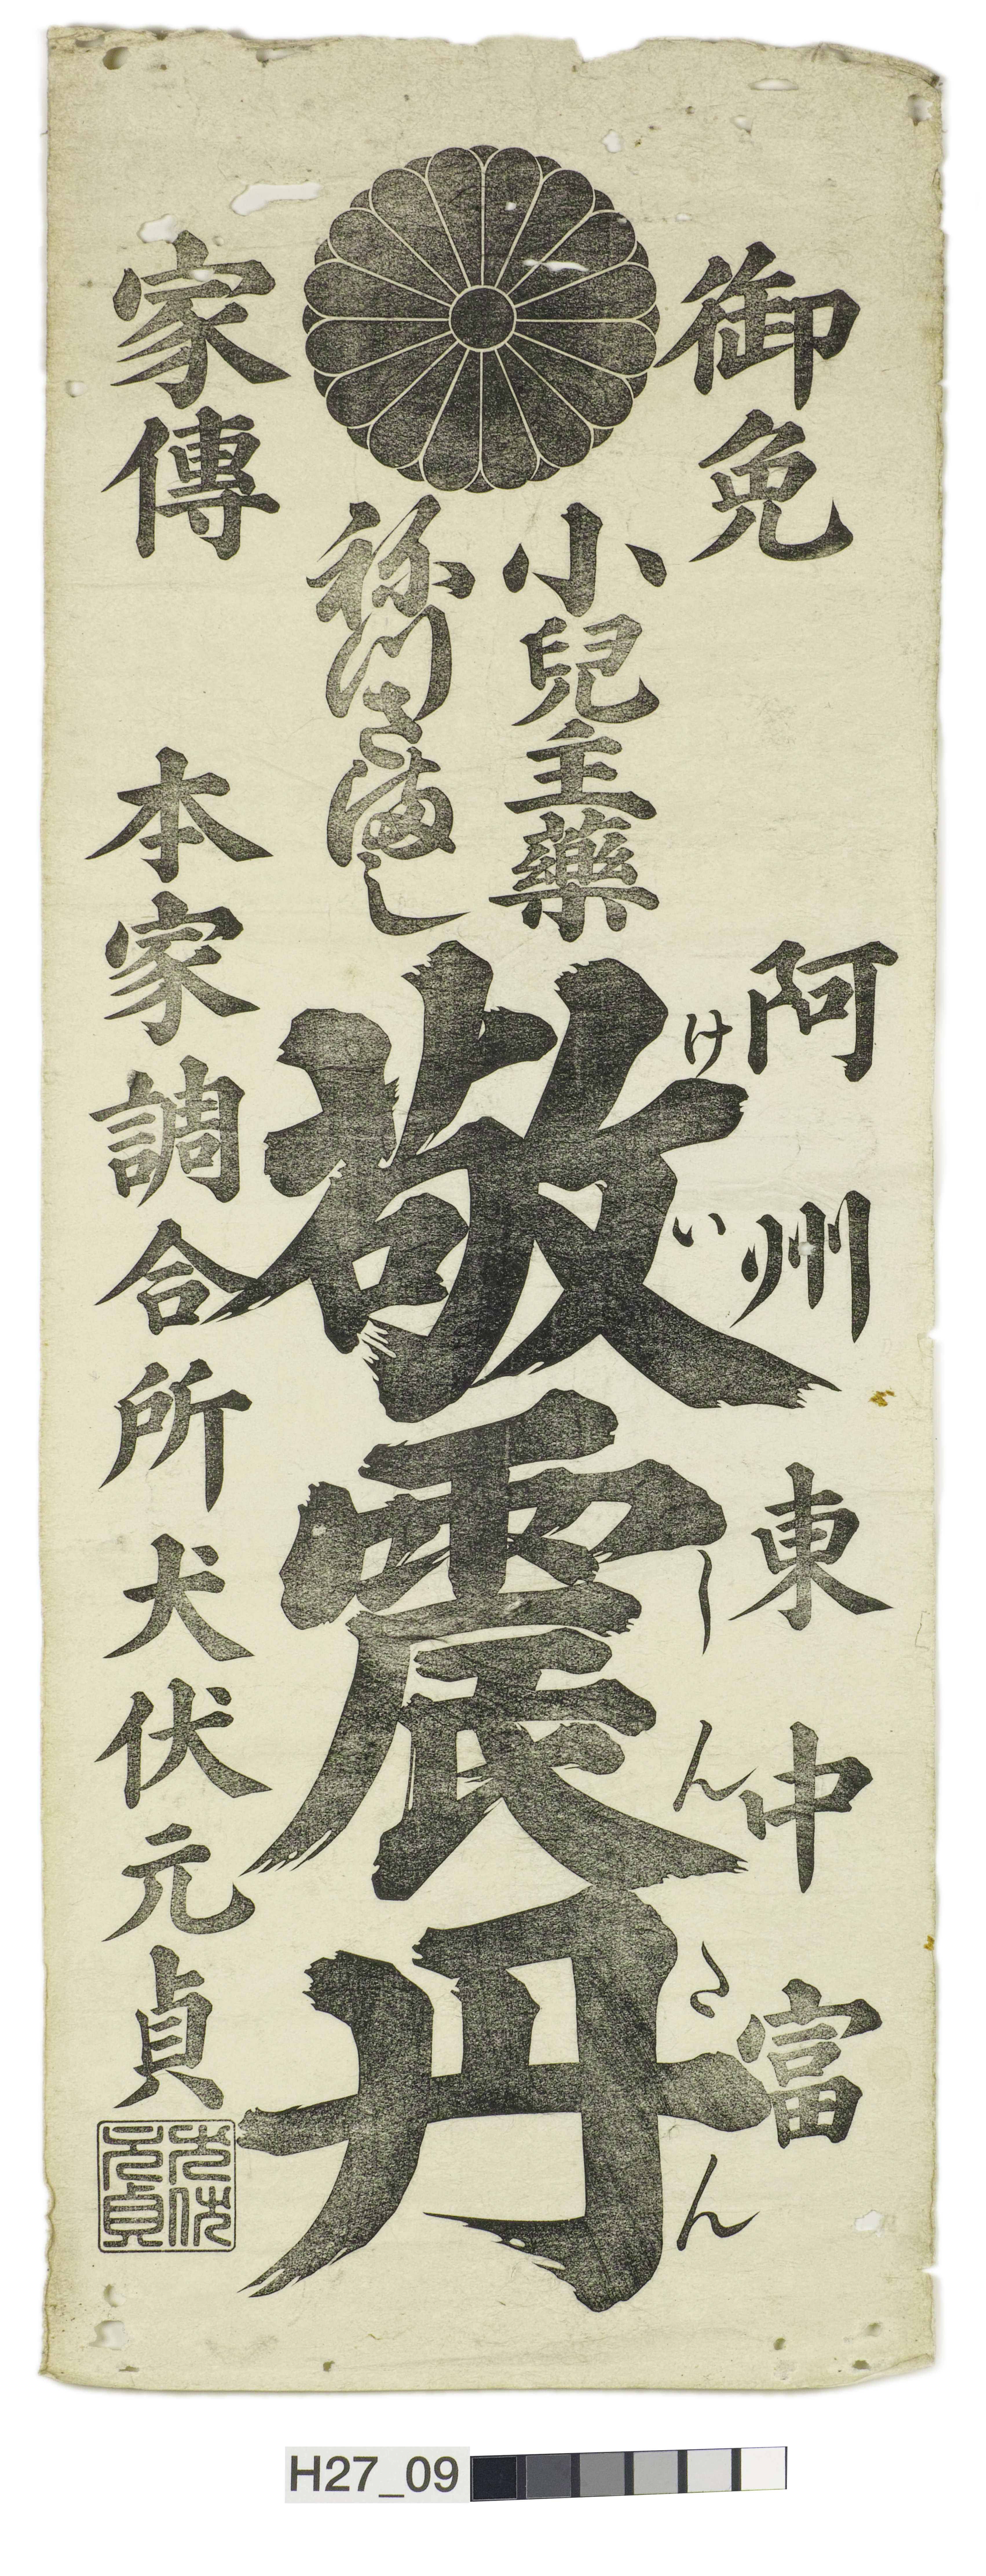 御免
阿州東中富
小兒主藥
祢つさまし
敬震丹
けいしんたん
家傳
本家調合所犬伏元貞
犬伏元貞
H27_09